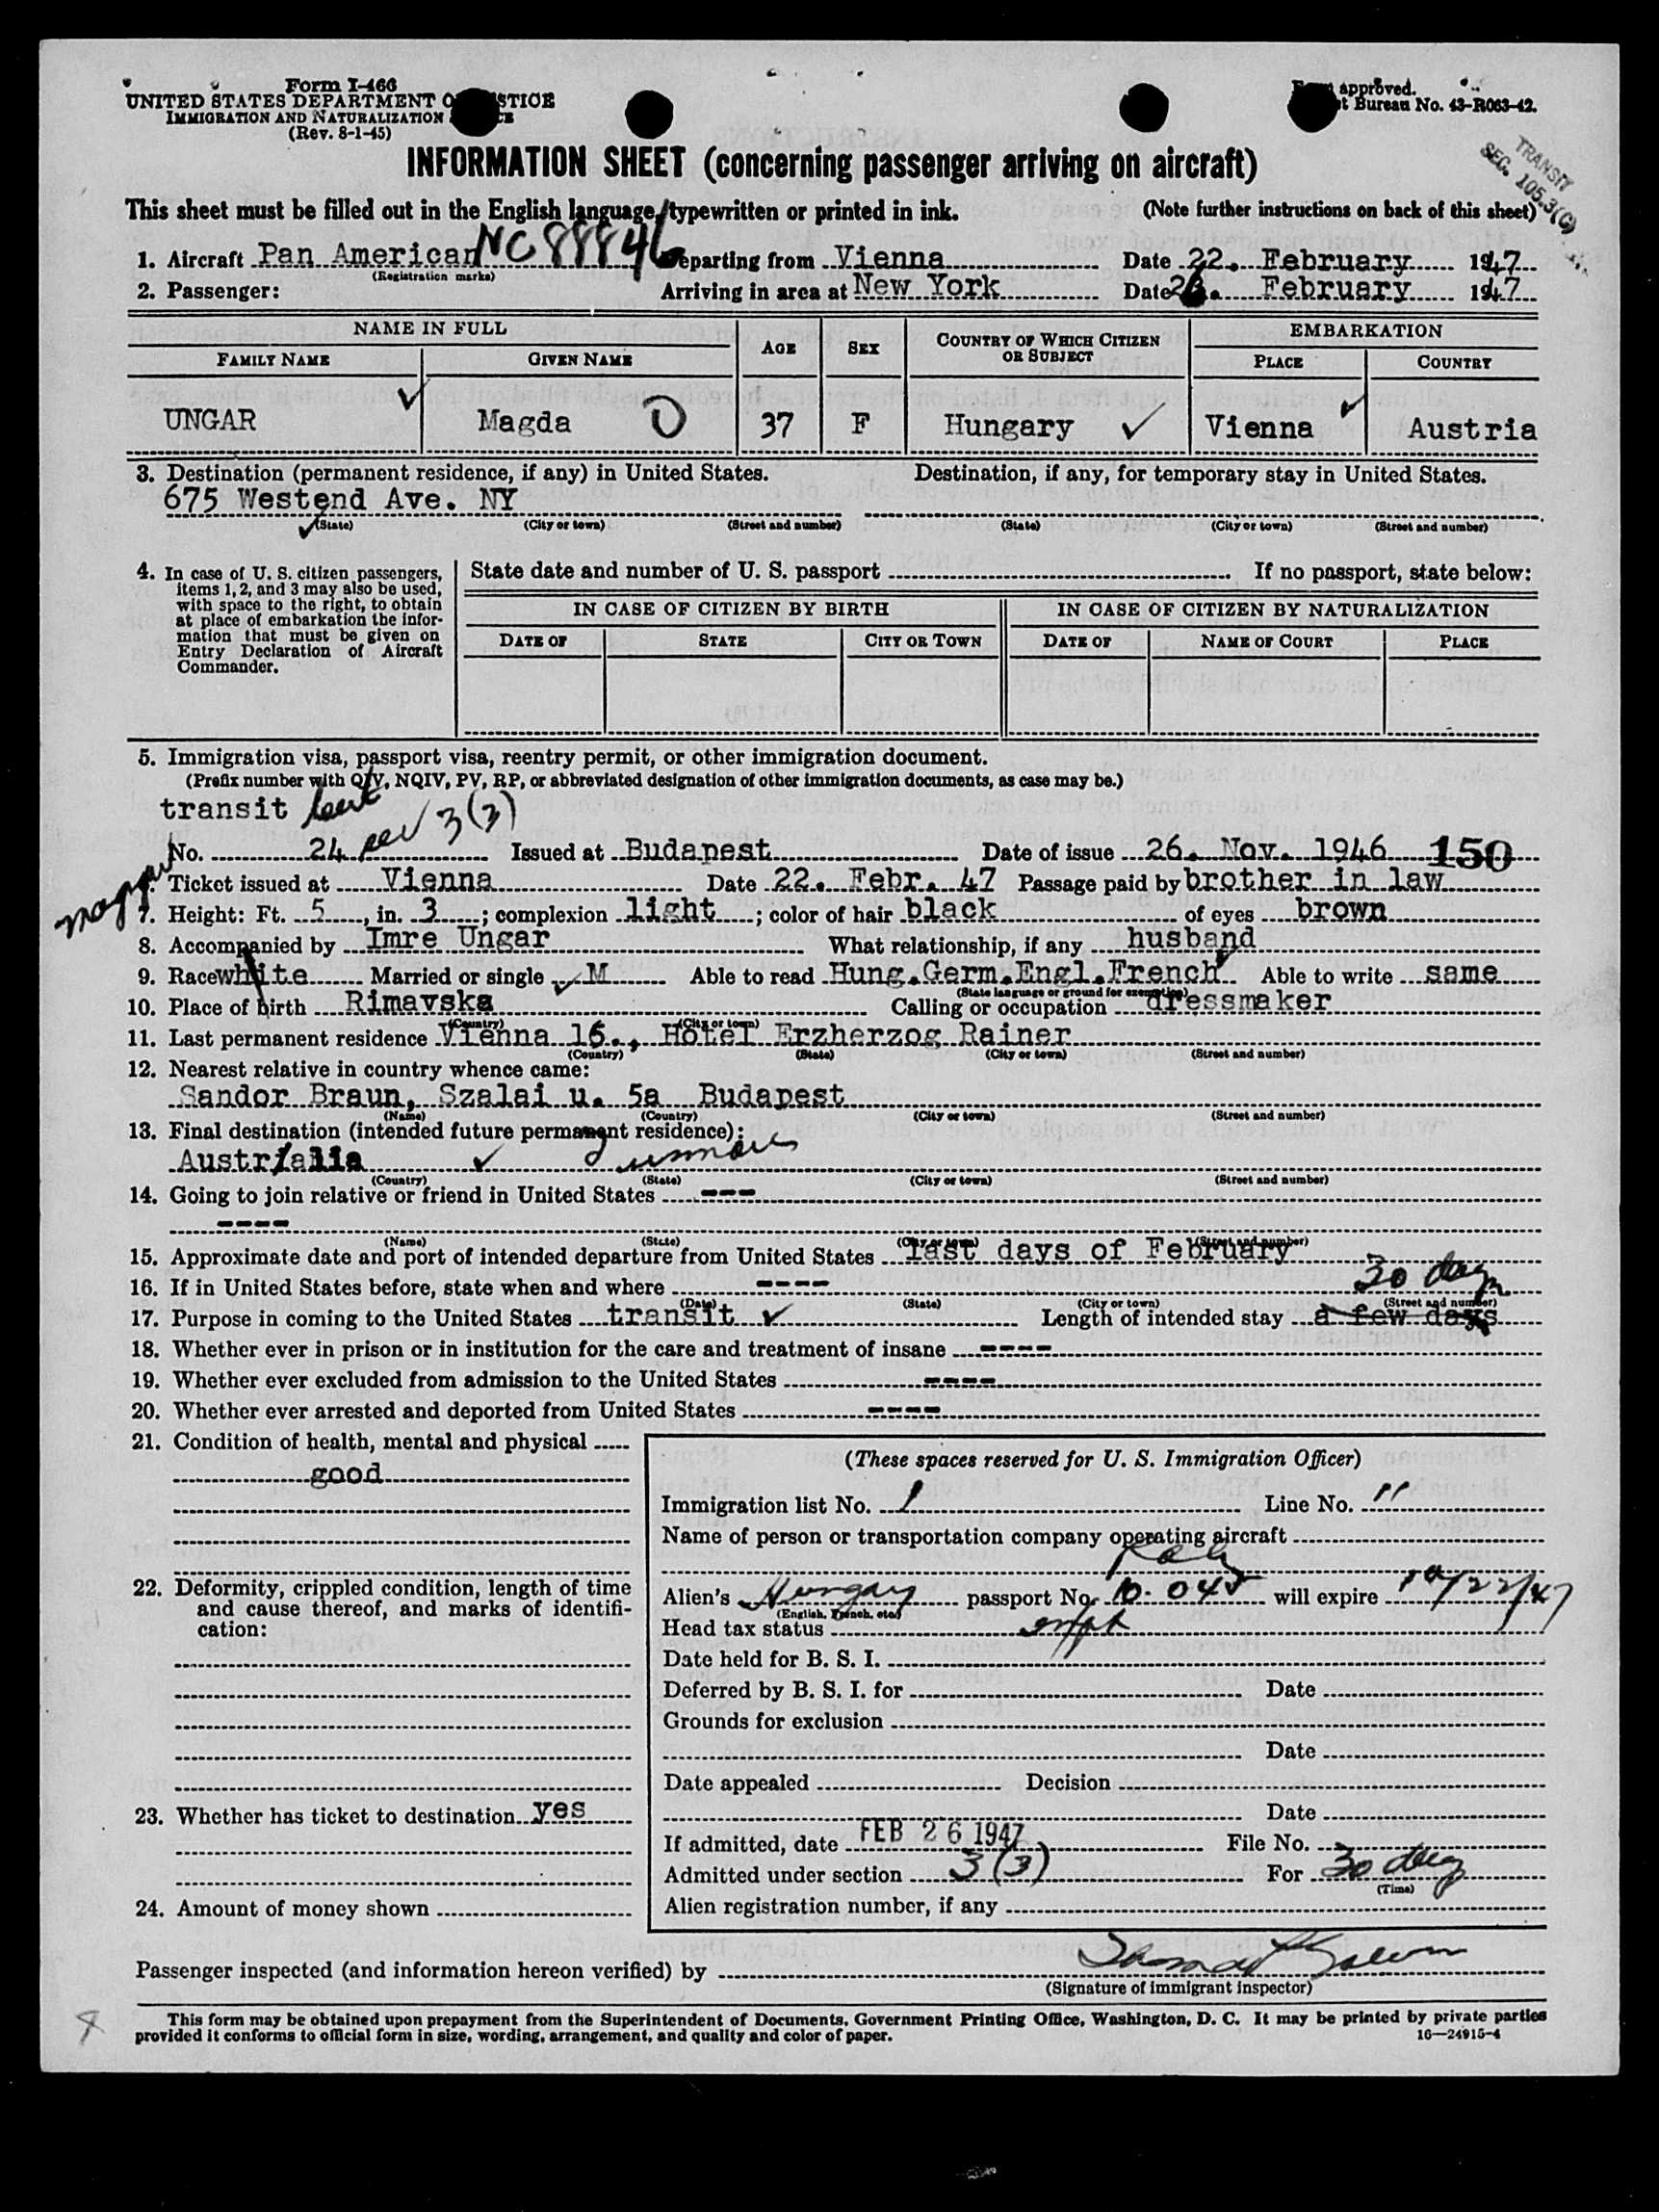 Form I-466
UNITED STATES DEPARTMENT O STICE
IMMIGRATION AND NATURALIZATION CE
(Rev. 8-1-45)
approved.
t Bureau No. 43-R063-42.
TRANSIT
SEC. 105.3(C)
INFORMATION SHEET (concerning passenger arriving on aircraft)
This sheet must be filled out in the English language, typewritten or printed in ink. (Note further instructions on back of this sheet)
1. Aircraft Pan American NC 88846 Departing from Vienna Date 22. February 1947
(Registration marks)
2. Passenger: Arriving in area at New York Date 26. February 1947
NAME IN FULL AGE SEX COUNTRY OF WHICH CITIZEN OR SUBJECT EMBARKATION
FAMILY NAME GIVEN NAME PLACE COUNTRY
UNGAR Magda 37 F Hungary Vienna Austria
3. Destination (permanent residence, if any) in United States. Destination, if any, for temporary stay in United States.
675 Westend Ave. NY
(State) (City or town) (Street and number) (State) (City or town) (Street and number)
4. In case of U. S. citizen passengers, items 1, 2, and 3 may also be used, with space to the right, to obtain at place of embarkation the information that must be given on Entry Declaration of Aircraft Commander.
State date and number of U. S. passport If no passport, state below:
IN CASE OF CITIZEN BY BIRTH IN CASE OF CITIZEN BY NATURALIZATION
DATE OF STATE CITY OR TOWN DATE OF NAME OF COURT PLACE
5. Immigration visa, passport visa, reentry permit, or other immigration document.
(Prefix number with QIV, NQIV, PV, RP, or abbreviated designation of other immigration documents, as case may be.)
transit cert
No. 24 sec 3(3) Issued at Budapest Date of issue 26. Nov. 1946 150
Magyar
6. Ticket issued at Vienna Date 22. Febr. 47 Passage paid by brother in law
7. Height: Ft. 5, in. 3; complexion light; color of hair black of eyes brown
8. Accompanied by Imre Ungar What relationship, if any husband
9. Race white Married or single M Able to read Hung.Germ.Engl.French Able to write same
(State language or ground for exemption)
10. Place of birth Rimavska Calling or occupation dressmaker
(Country) (City or town)
11. Last permanent residence Vienna 16., Hotel Erzherzog Rainer
(Country) (State) (City or town) (Street and number)
12. Nearest relative in country whence came:
Sandor Braun, Szalai u. 5a Budapest
(Name) (Country) (City or town) (Street and number)
13. Final destination (intended future permanent residence):
Australia
(Country) (State) (City or town) (Street and number)
14. Going to join relative or friend in United States ---
----
(Name) (State) (City or town) (Street and number)
15. Approximate date and port of intended departure from United States last days of February
16. If in United States before, state when and where ---- 30 days
(Date) (State) (City or town) (Street and number)
17. Purpose in coming to the United States transit Length of intended stay a few days
18. Whether ever in prison or in institution for the care and treatment of insane ----
19. Whether ever excluded from admission to the United States ----
20. Whether ever arrested and deported from United States ----
21. Condition of health, mental and physical
good
22. Deformity, crippled condition, length of time and cause thereof, and marks of identification:
23. Whether has ticket to destination yes
24. Amount of money shown
(These spaces reserved for U. S. Immigration Officer)
Immigration list No. 1 Line No. 11
Name of person or transportation company operating aircraft
Alien's Hungary passport No. 10.045 will expire 10/22/47
(English, French, etc.)
Head tax status
Date held for B. S. I.
Deferred by B. S. I. for Date
Grounds for exclusion
Date
Date appealed Decision
Date
If admitted, date FEB 26 1947 File No.
Admitted under section 3(3) For 30 days
(Time)
Alien registration number, if any
Passenger inspected (and information hereon verified) by
(Signature of immigrant inspector)
This form may be obtained upon prepayment from the Superintendent of Documents, Government Printing Office, Washington, D. C. It may be printed by private parties
provided it conforms to official form in size, wording, arrangement, and quality and color of paper. 16—24915-4